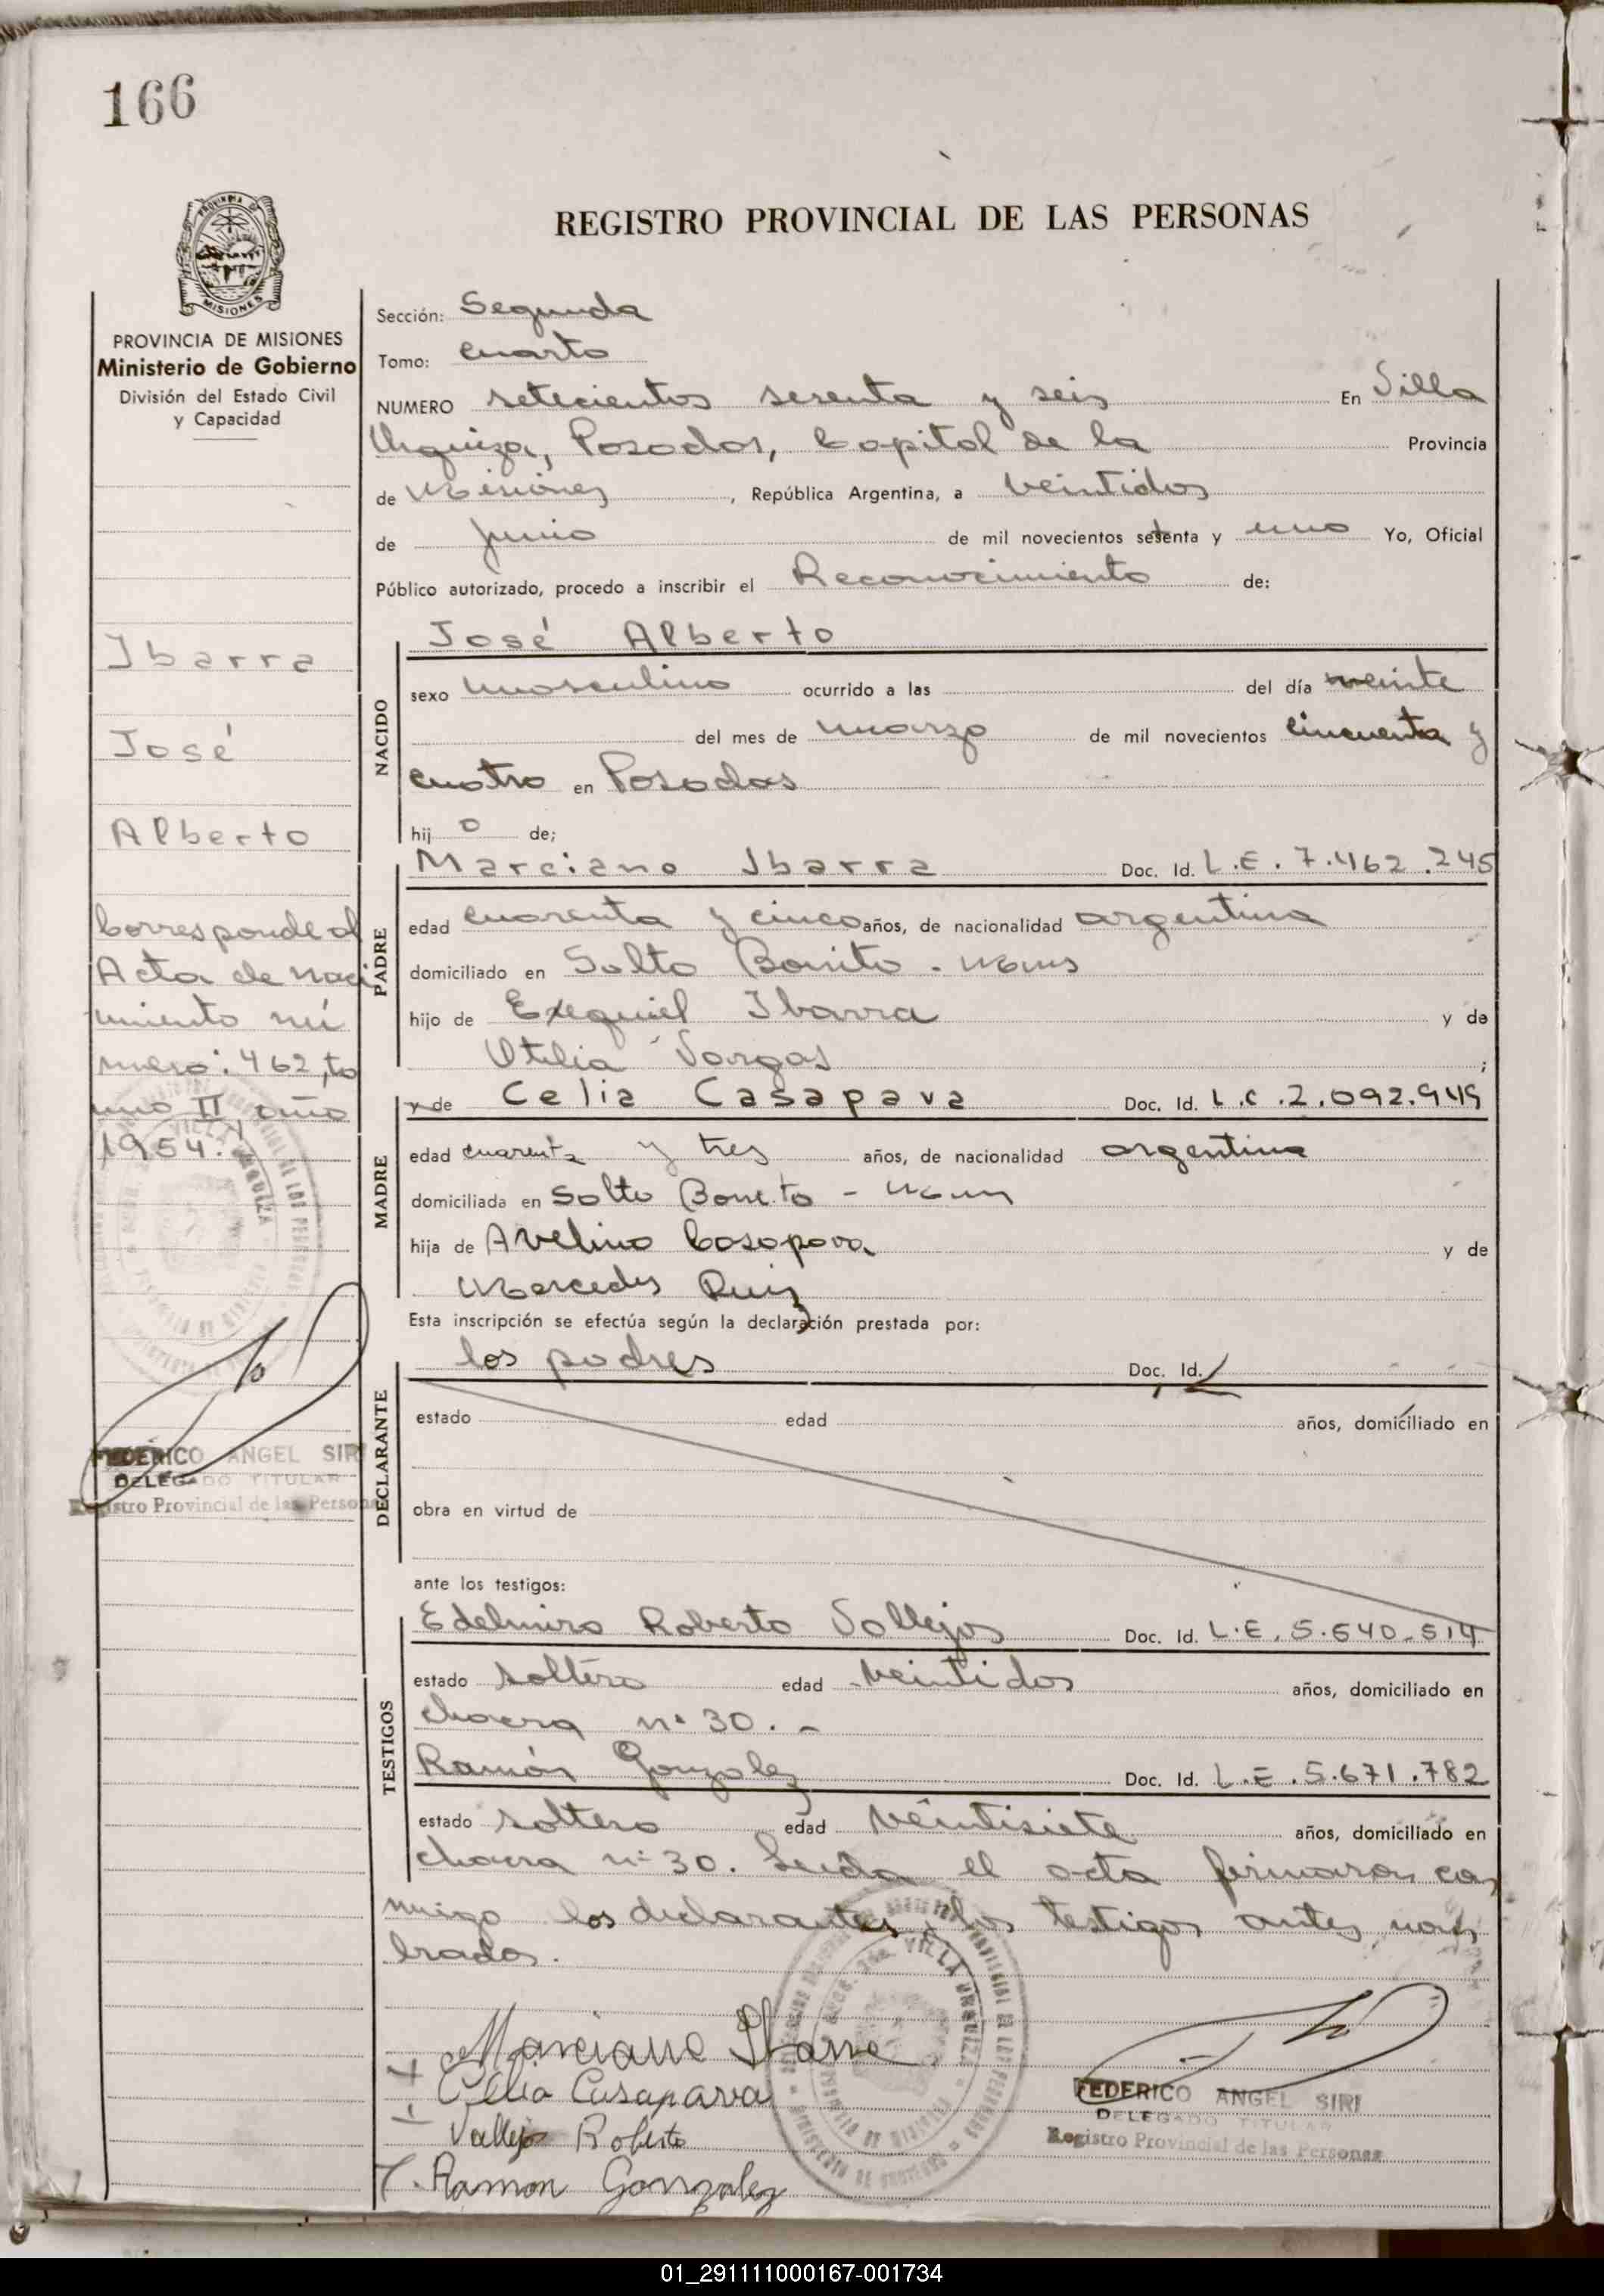 166
PROVINCIA DE
MISIONES
REGISTRO PROVINCIAL DE LAS PERSONAS
PROVINCIA DE MISIONES
Ministerio de Gobierno
División del Estado Civil
y Capacidad
Ibarra
José
Alberto
Corresponde al
Acta de naci
miento nú
mero: 462, to
mo II año
1954.
FEDERICO ANGEL SIRI
DELEGADO TITULAR
Registro Provincial de las Personas
Sección: Segunda
Tomo: Cuarto
NUMERO setecientos sesenta y seis En Villa
Urquiza, Posadas, Capital de la Provincia
de Misiones, República Argentina, a veintidos
de junio de mil novecientos setenta y uno Yo, Oficial
Público autorizado, procedo a inscribir el Reconocimiento de:
NACIDO
José Alberto
sexo masculino ocurrido a las del día veinte
del mes de marzo de mil novecientos cincuenta y
cuatro en Posadas
hij o de;
PADRE
Marciano Ibarra Doc. Id. L.E. 7.462.245
edad cuarenta y cinco años, de nacionalidad argentina
domiciliado en Salto Bonito - Mnes
hijo de Exequiel Ibarra y de
Otilia Vargas ;
MADRE
y de Celia Casapava Doc. Id. L.C. 2.092.949
edad cuarenta y tres años, de nacionalidad argentina
domiciliada en Salto Bonito - Mnes
hija de Avelino Casapava y de
Mercedes Ruiz
Esta inscripción se efectúa según la declaración prestada por:
DECLARANTE
los padres Doc. Id.
estado edad años, domiciliado en
obra en virtud de
ante los testigos:
TESTIGOS
Edelmiro Roberto Vallejos Doc. Id. L.E. 5.640.514
estado soltero edad veintidos años, domiciliado en
chacra nº 30. -
Ramón Gonzalez Doc. Id. L.E. 5.671.782
estado soltero edad veintisiete años, domiciliado en
chacra nº 30. Leida el acta firmaron co
nmigo los declarantes y los testigos antes nom
brados.
VILLA URQUIZA
Marciano Ibarra
Celia Casaparva
Vallejo Roberto
Ramon Gonzalez
FEDERICO ANGEL SIRI
DELEGADO TITULAR
Registro Provincial de las Personas
01_291111000167-001734